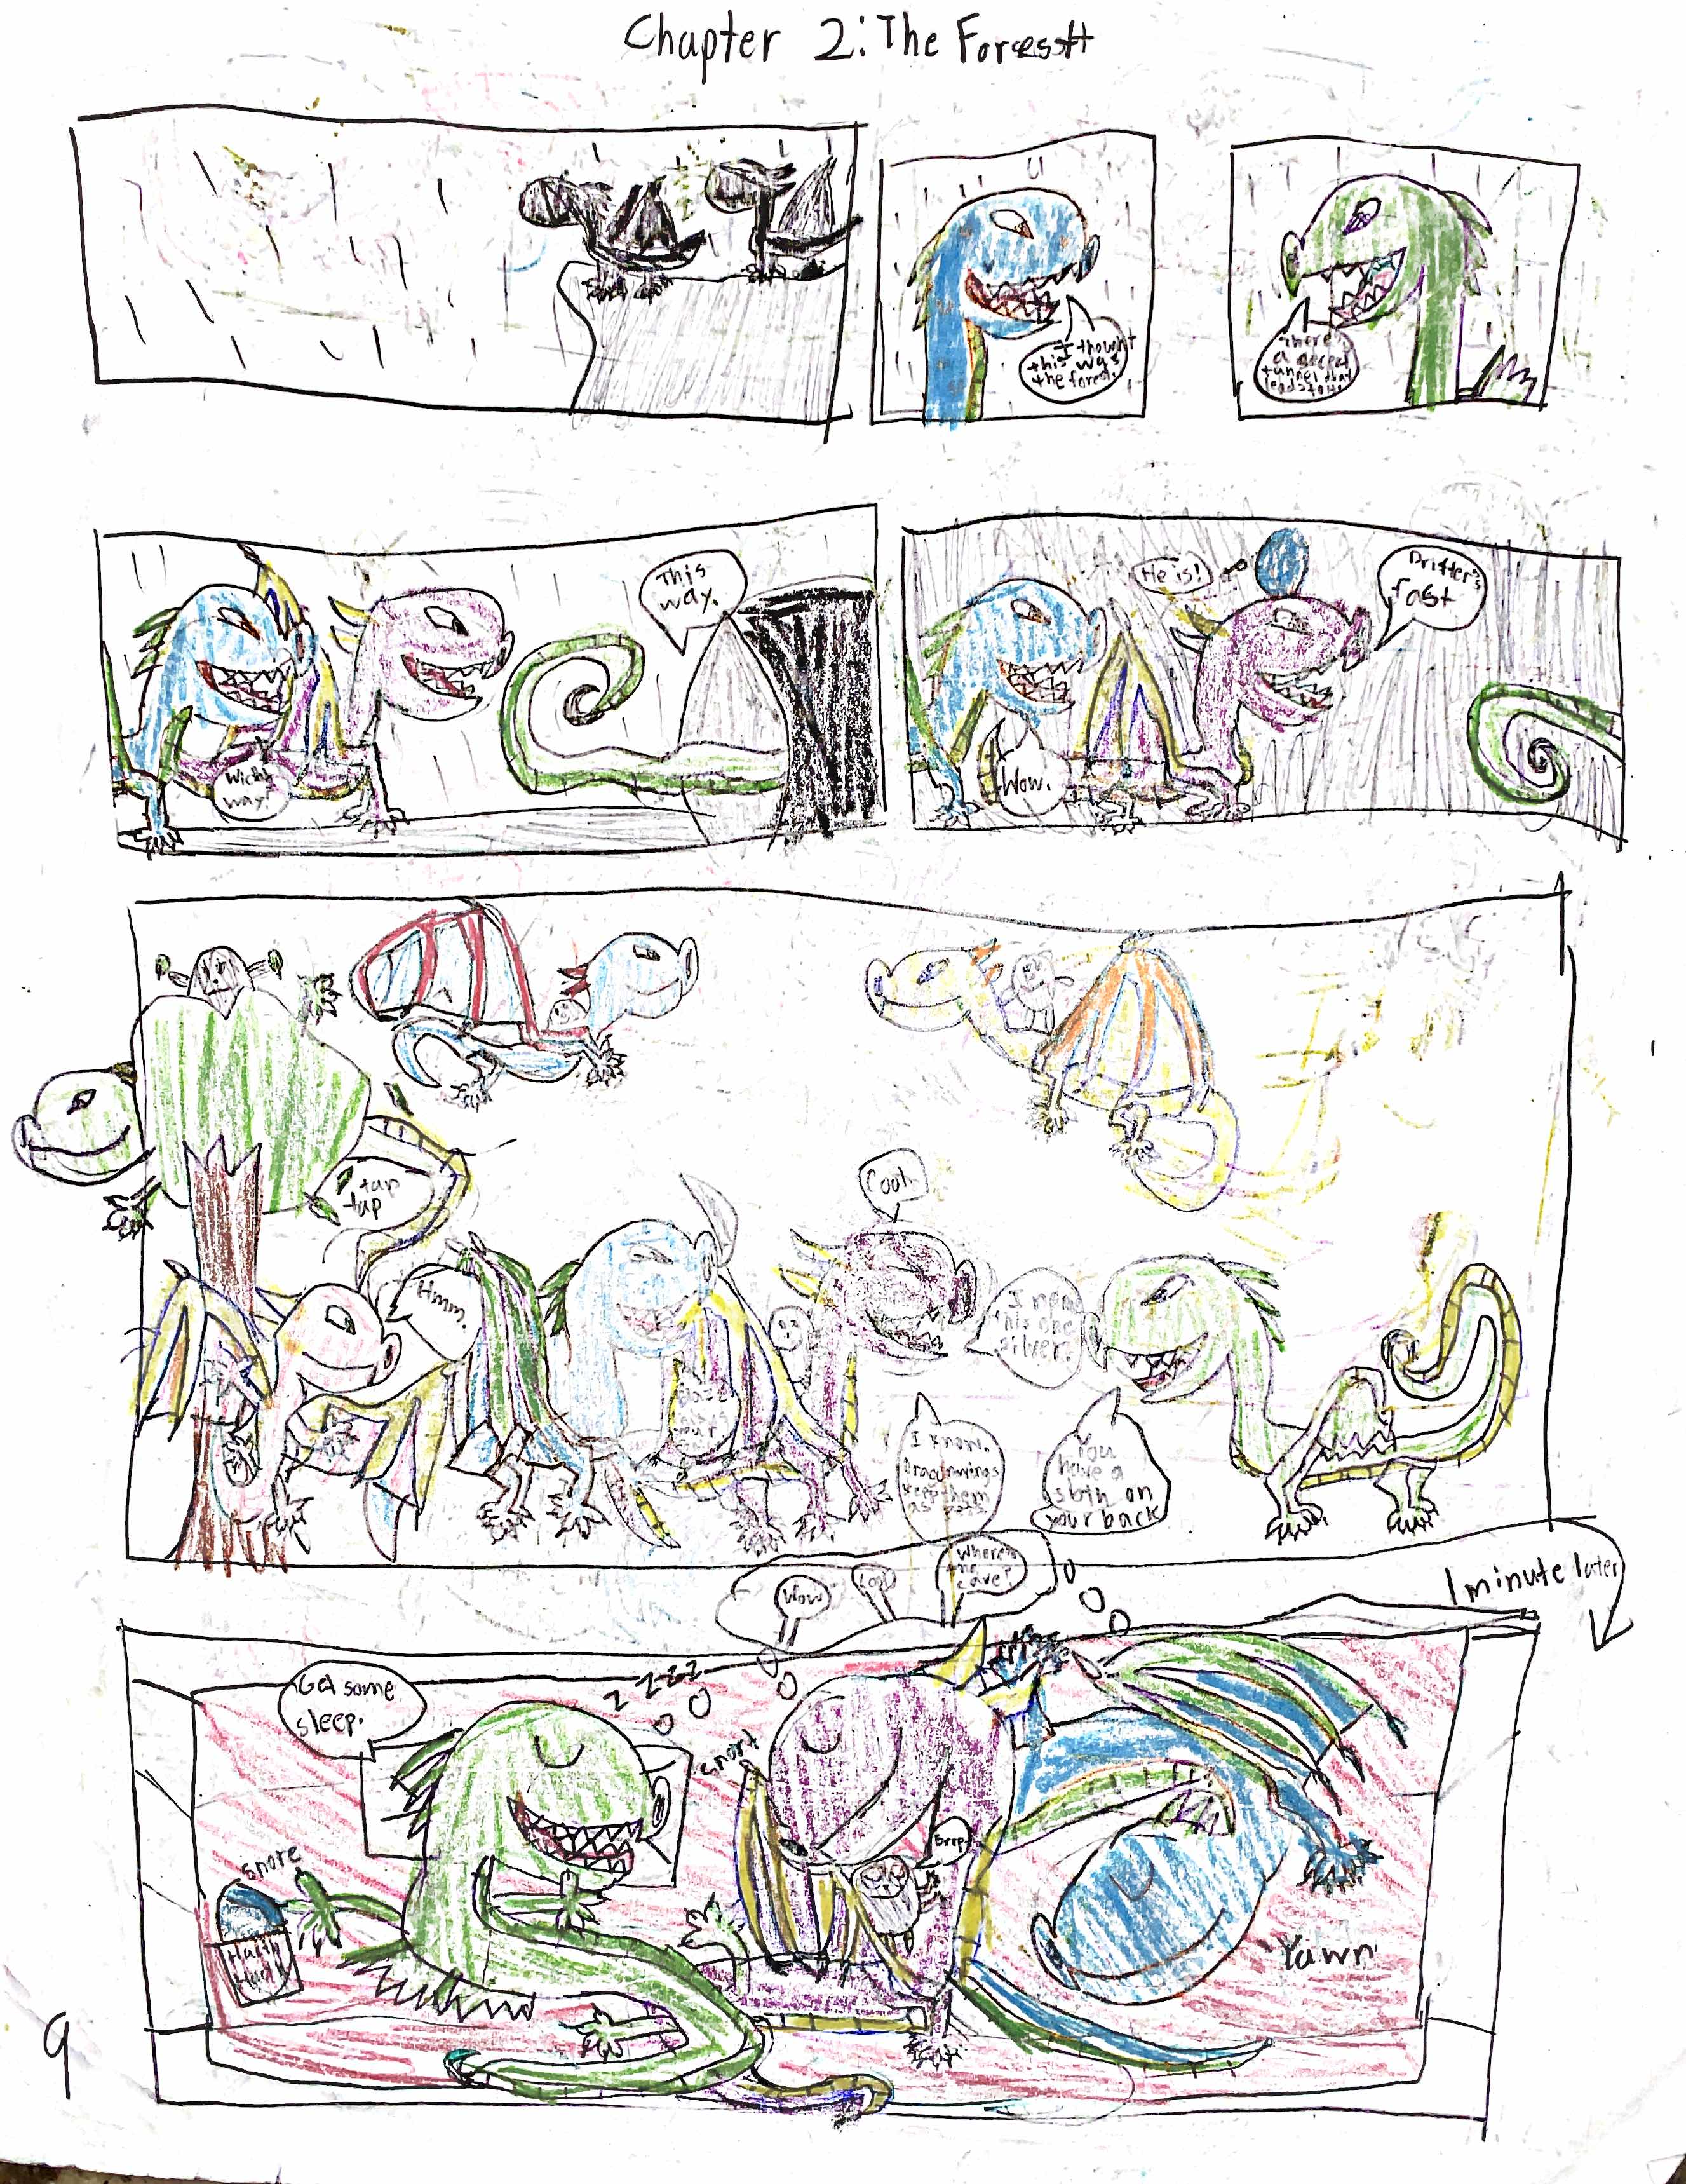 Chapter 2: The Foresst
I thowt
this was
the forest.
There's
a secret
tunnel that
leads to it.
Wich
way?
This
way.
Wow.
He is!
Drifter's
fast
tap
tap
Hmm.
Cool.
I name
this one
silver.
your
I know.
keep them
as pets
You
have a
sloth on
your back
1 minute later
Wow
Cool
Where's
the
cave?
Get some
sleep.
z z z z
snort
snore
Beep
Yawn
9